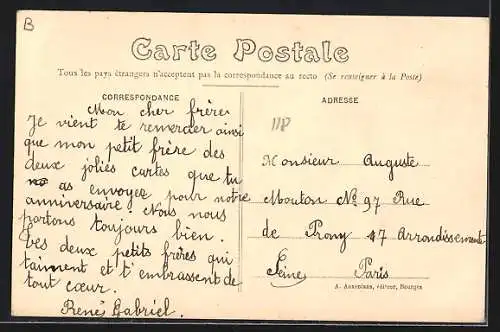 B
Carte Postale
Tous les pays étrangers n'acceptent pas la correspondance au recto (Se renseigner à la Poste)
CORRESPONDANCE
Mon cher frère
Je vient te remercier ainsi
que mon petit frère des
deux jolies cartes que tu
as envoyez pour notre
anniversaire. Nous nous
portons toujours bien.
Tes deux petits frères qui
t'aiment et t'embrassent de
tout cœur.
René Gabriel.
ADRESSE
118
Monsieur Auguste
Mouton No 97 Rue
de Prony 17 Arrondissemente
Seine Paris
A. Auxenfans, éditeur, Bourges